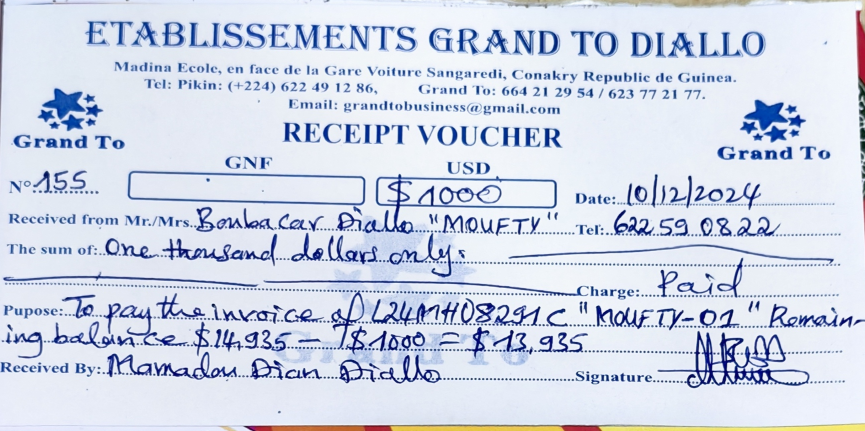 ETABLISSEMENTS GRAND TO DIALLO
Madina Ecole, en face de la Gare Voiture Sangaredi, Conakry Republic de Guinea.
Tel: Pikin: (+224) 622 49 12 86, Grand To: 664 21 29 54 / 623 77 21 77.
Email: grandtobusiness@gmail.com
Grand To RECEIPT VOUCHER Grand To
GNF USD
N° 155 $1000 Date: 10/12/2024
Received from Mr./Mrs. Boubacar Diallo "MOUFTY" Tel: 622 59 08 22
The sum of: One thousand dollars only.
Charge: Paid
Pupose: To pay the invoice of L24MH08291C "MOUFTY-01" Remain-
ing balance $14,935 - $1000 = $13,935
Received By: Mamadou Dian Diallo Signature